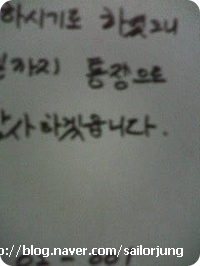 하시기로 하엿그니
일까지 통장으로
감사하겟읍니다.
http://blog.naver.com/sailorjung